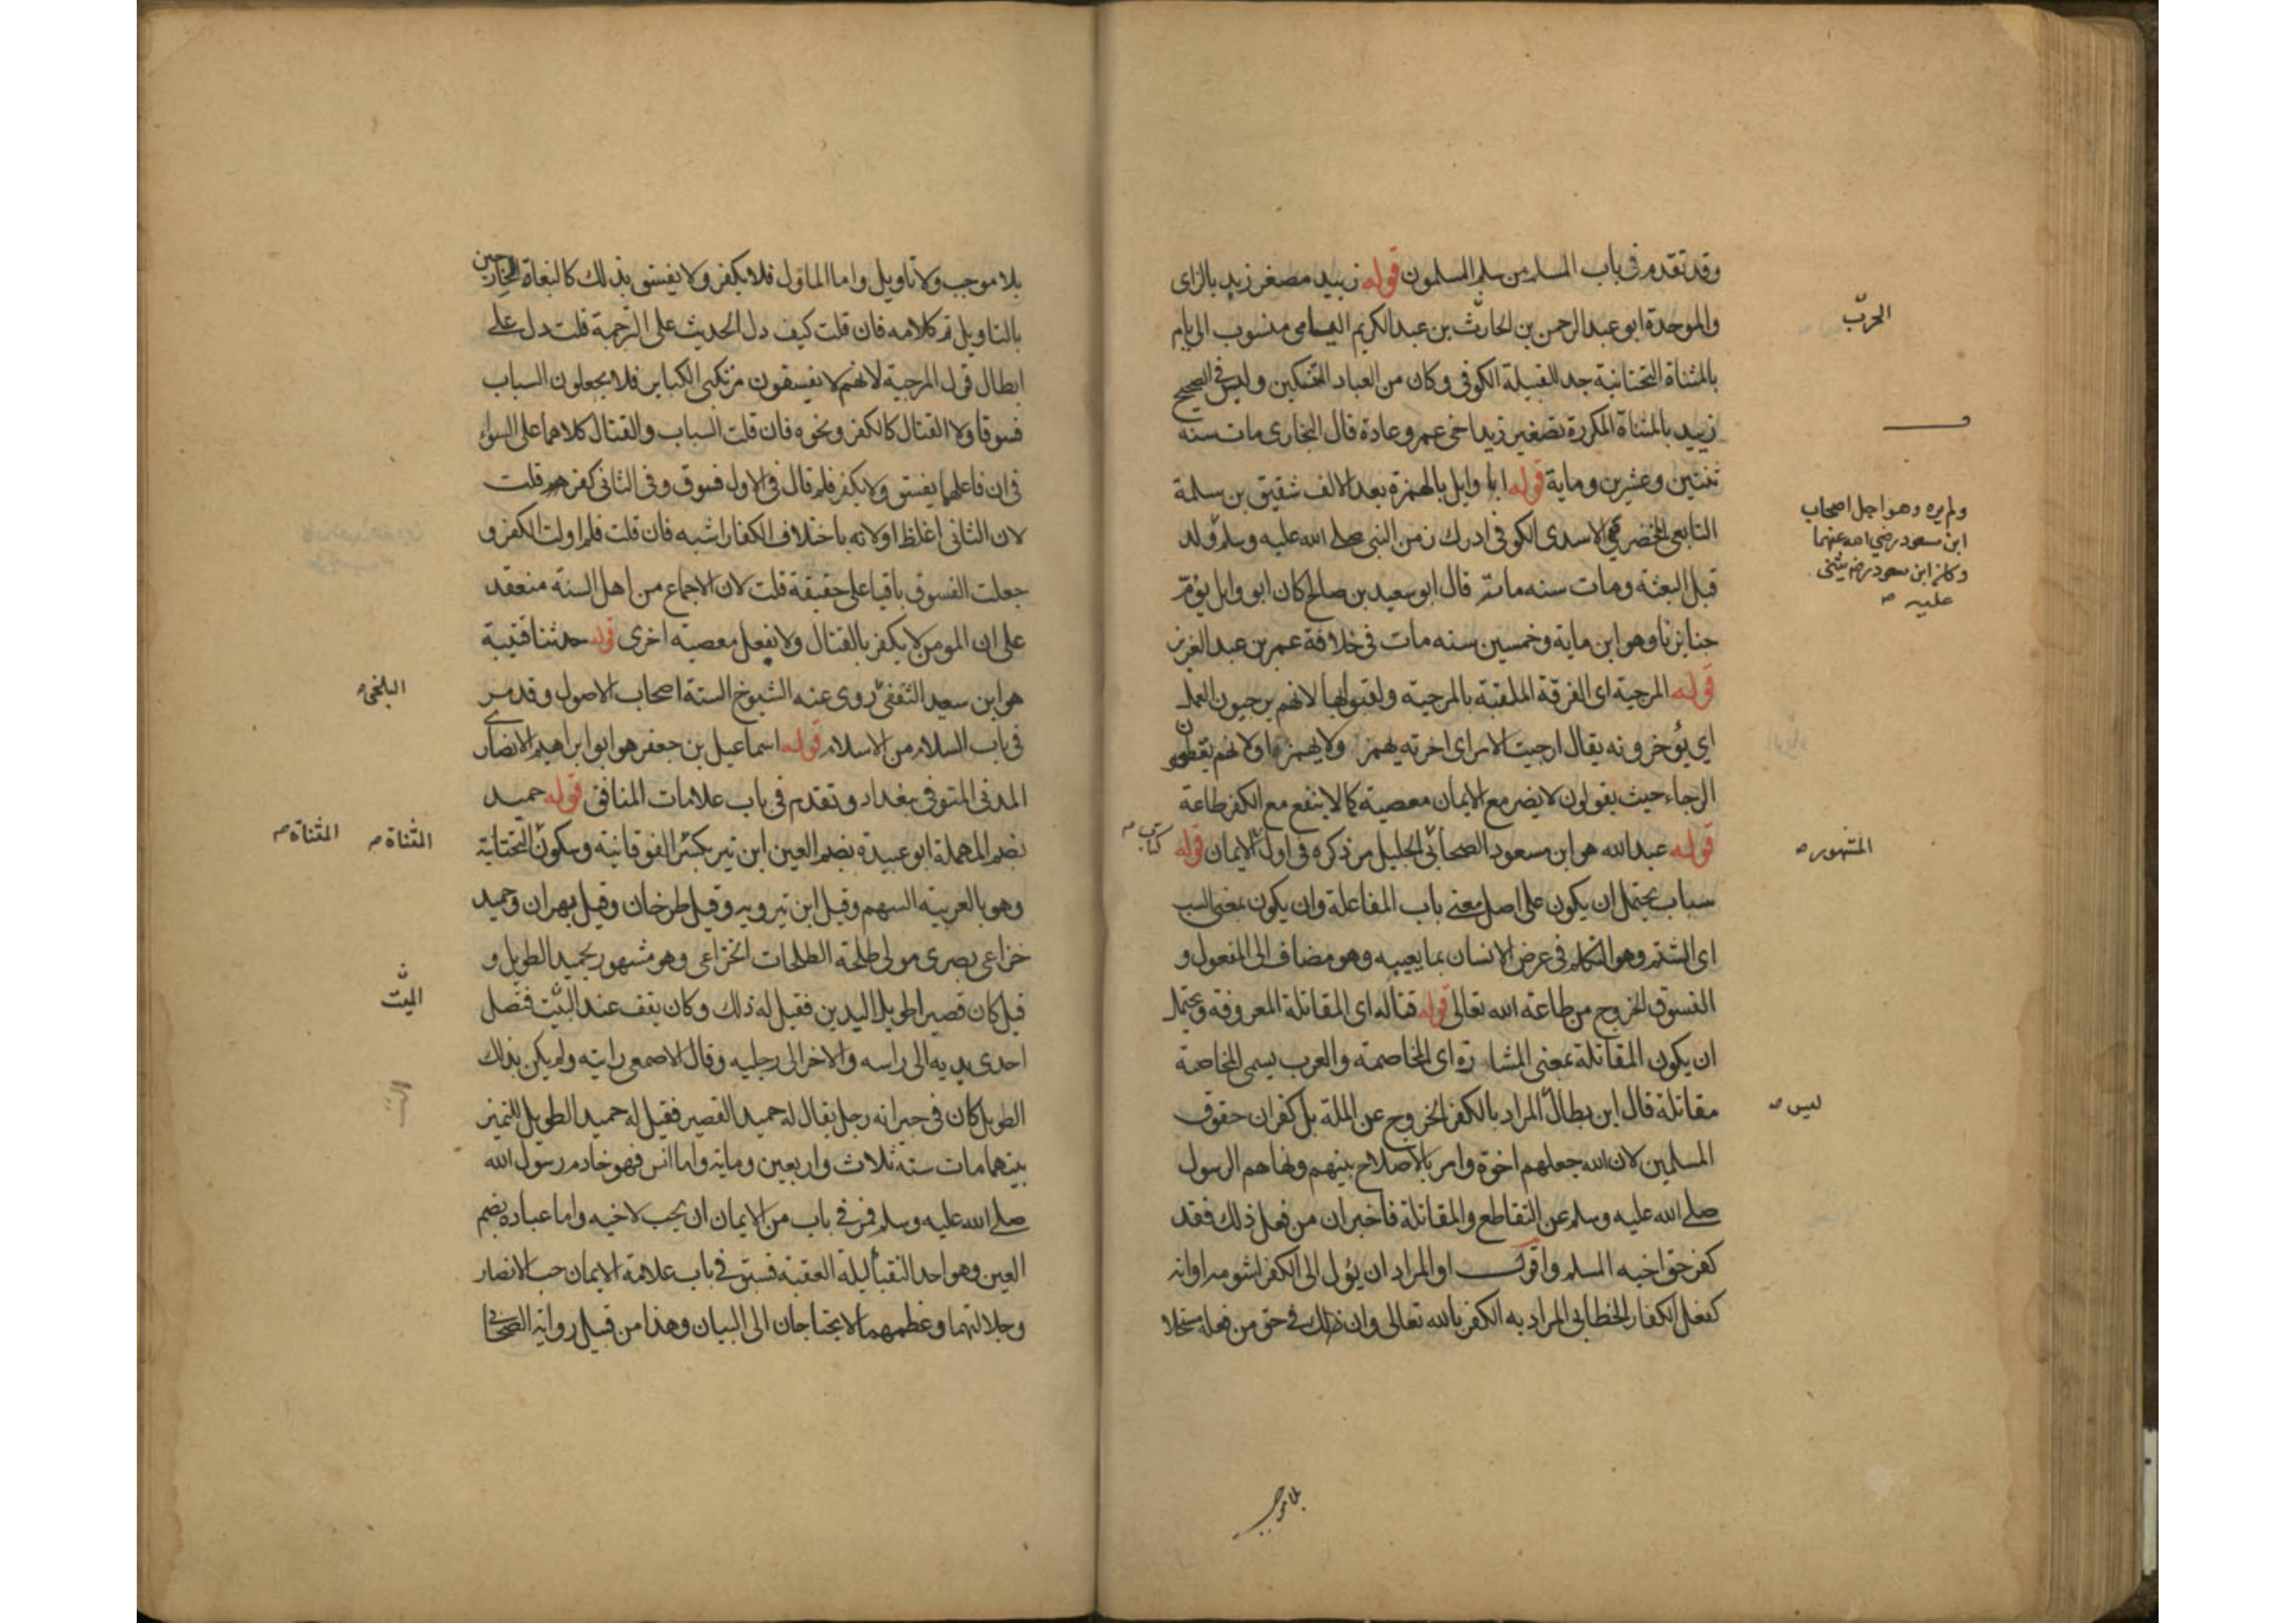 وقد تقدم في باب المسلم من سلم المسلمون قوله زبيد مصغر زبد بالزاى
والموحدة ابو عبد الرحمن بن الحارث بن عبد الكريم اليامى منسوب الى يام
بالمثناة التحتانية جد القبيلة الكوفى وكان من العباد المتنسكين وليس في الصحيح
زييد بالمثناة المكررة تصغير زيد اخى عمرو عادة قال البخارى مات سنه
ثنتين وعشرين وماية قوله ابا وايل بالهمزة بعد الالف شقيق بن سلمة
التابعى المخضرمى الاسدى الكوفى ادرك زمن النبى صلى الله عليه وسلم ولد
قبل البعثة ومات سنه ماتة قال ابو سعيد بن صالح كان ابو وايل يؤم
جنايزنا وهو ابن ماية وخمسين سنه مات فى خلافة عمر بن عبد العزيز
قوله المرجية اى الفرقة الملقبة بالمرجية ولقبوا بها لانهم يرجيون العمل
اي يؤخرونه يقال ارجيت الامر اى اخرته يهمز ولا يهمز واما لانهم يعطون
الرجاء حيث يقولون لا يضر مع الايمان معصية كما لا ينفع مع الكفر طاعة
قوله عبد الله هو ابن مسعود الصحابى الجليل مر ذكره فى اول الايمان قوله
سباب يحتمل ان يكون على اصل معنى باب المفاعلة وان يكون بمعنى السب
اى الشتم وهو التكلم فى عرض الانسان بما يعيبه وهو مضاف الى المفعول و
الفسوق الخروج من طاعة الله تعالى قوله قتاله اى المقاتلة المعروفة ويحتمل
ان يكون المقاتلة بمعنى المشا رة اى المخاصمة والعرب يسمى المخاصمة
مقاتلة قال ابن بطال المراد بالكفر الخروج عن الملة بل كفران حقوق
المسلمين لان الله جعلهم اخوة وامر بالاصلاح بينهم ونهاهم الرسول
صلى الله عليه وسلم عن التقاطع والمقاتلة فاخبر ان من فعل ذلك فقد
كفر حق اخيه المسلم واقول او المراد ان يؤل الى الكفر لشومه او انه
كفعل الكفار الخطابى المراد به الكفر بالله تعالى وان ذلك فى حق من فعله مستحلا
الحرث
ولم يره وهو اجل اصحاب
ابن مسعود رضي الله عنهما
وكان ابن مسعود رضه يثنى
عليه صح
المشهور صح
كتاب صح
ليس صح
بلا موجب
بلا موجب ولا تاويل واما الماول فلا يكفر ولا يفسق بذلك كالبغاة الخارجين
بالتاويل تم كلامه فان قلت كيف دل الحديث على الترجمة قلت دل على
ابطال قول المرجية لانهم لا يفسقون مرتكبى الكباير فلا يجعلون السباب
فسوقا ولا القتال كالكفر ونحوه فان قلت السباب والقتال كلاهما على السواء
فى ان فاعلهما يفسق ولا يكفر فلم قال فى الاول فسوق وفى الثانى كفر قلت
لان الثانى اغلظ او لانه باختلاف الكفار اشبه فان قلت فلم اولت الكفر و
جعلت الفسوق باقيا على حقيقة قلت لان الاجماع من اهل السنة منعقد
على ان المومن لا يكفر بالقتال ولا بفعل معصية اخرى قوله حدثنا قتيبة
هو ابن سعيد الثقفى روى عنه الشيوخ الستة اصحاب الاصول وقد مر
فى باب السلام من الاسلام قوله اسماعيل بن جعفر هو ابو ابراهيم الانصارى
المدنى المتوفى ببغداد وتقدم فى باب علامات المنافق قوله حميد
بضم المهملة ابو عبيدة بضم العين ابن تير بكسر الفوقانية وسكون التحتانية
وهو بالعربية السهم وقيل ابن تيرويه وقيل طرخان وقيل مهران وحميد
خزاعى بصرى مولى طلحة الطلحات الخزاعى وهو مشهور بحميد الطويل و
قيل كان قصيرا طويل اليدين فقيل له ذلك وكان يقف عند البيت فتصل
احدى يديه الى راسه والاخر الى رجليه وقال الاصمعى رايته ولم يكن بذلك
الطويل كان فى جيرانه رجل يقال له حميد القصير فقيل له حميد الطويل للتميز
بينهما مات سنة ثلاث واربعين وماية واما انس فهو خادم رسول الله
صلى الله عليه وسلم فمر فى باب من الايمان ان يحب لاخيه واما عبادة بضم
العين وهو احد النقبا ليلة العقبة فسبق فى باب علامة الايمان حب الانصار
وجلالتهما وعظمهما لا يحتاجان الى البيان وهذا من قبيل رواية الصحابى
البلخى صح
المثناة صح
المثناة صح
الميت